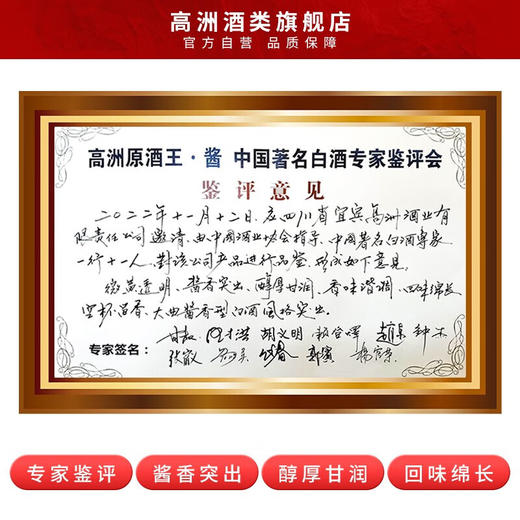 高洲酒类旗舰店
官方自营 品质保障
高洲原酒王·酱 中国著名白酒专家鉴评会
鉴评意见
二〇二二年十一月十二日,应四川省宜宾高洲酒业有
限责任公司邀请,由中国酒业协会指导,中国著名白酒专家
一行十一人,对该公司产品进行品鉴,形成如下意见。
微黄透明、酱香突出、醇厚甘润、香味谐调、回味绵长
空杯留香、大曲酱香型白酒风格突出。
胡义明
专家签名:
专家鉴评
酱香突出
醇厚甘润
回味绵长